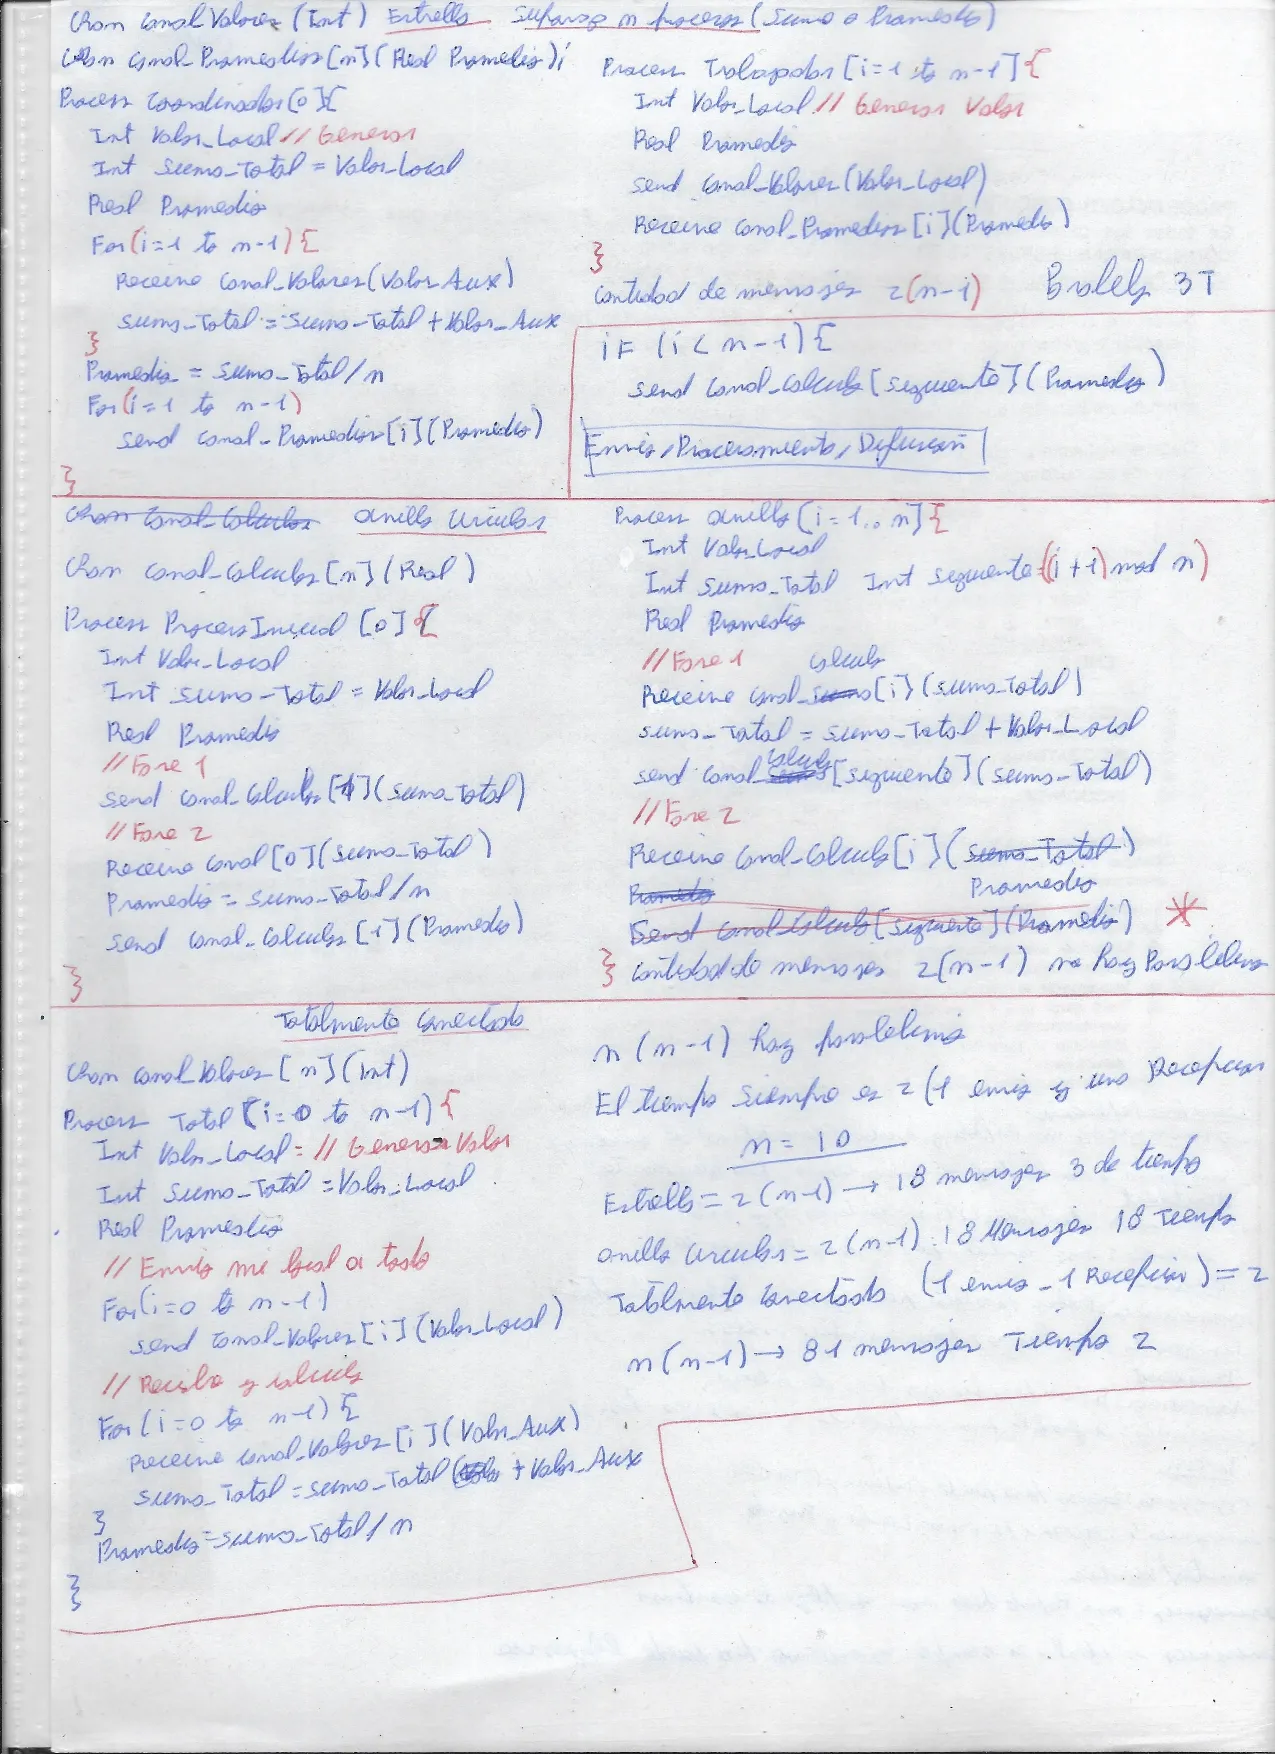 Chan Canal_Valores (Int) Estrella Suponga n procesos (Suma o Promedio)
Chan Canal_Promedios [n] (Real Promedio);
Process Coordinador [0] {
Int Valor_Local // Generar
Int Suma_Total = Valor_Local
Real Promedio
For (i=1 to n-1) {
Receive Canal_Valores (Valor_Aux)
Suma_Total = Suma_Total + Valor_Aux
}
Promedio = Suma_Total / n
For (i=1 to n-1)
send Canal_Promedios [i] (Promedio)
}
Process Trabajador [i=1 to n-1] {
Int Valor_Local // Generar Valor
Real Promedio
send Canal_Valores (Valor_Local)
Receive Canal_Promedios [i] (Promedio)
}
Cantidad de mensajes 2(n-1) Paralelo 3T
IF (i < n-1) {
send Canal_Calculo [siguiente] (Promedio)
Envio, Procesamiento, Difusion
Chan Canal_Calculos Anillo Circular
Chan Canal_Calculo [n] (Real)
Process Proceso Inicial [0] {
Int Valor_Local
Int Suma_Total = Valor_Local
Real Promedio
// Fase 1
Send Canal_Calculo [1] (Suma_Total)
// Fase 2
Receive Canal [0] (Suma_Total)
Promedio = Suma_Total / n
send Canal_Calculo [1] (Promedio)
}
Process Anillo [i=1..n] {
Int Valor_Local
Int Suma_Total Int siguiente = ((i+1) mod n)
Real Promedio
// Fase 1 Calculo
Receive Canal_Suma [i] (Suma_Total)
Suma_Total = Suma_Total + Valor_Local
Calculo
send Canal_Suma [siguiente] (Suma_Total)
// Fase 2
Receive Canal_Calculo [i] (Suma_Total)
Promedio Promedio
Send Canal_Calculo [siguiente] (Promedio) *
} Cantidad de mensajes 2(n-1) no hay Paralelismo
Totalmente Conectado
Chan Canal_Valores [n] (Int)
Process Total [i=0 to n-1) {
Int Valor_Local = // Generar Valor
Int Suma_Total = Valor_Local
Real Promedio
// Envio mi local a todo
For (i=0 to n-1)
send Canal_Valores [i] (Valor_Local)
// Recibo y calculo
For (i=0 to n-1) {
Receive Canal_Valores [i] (Valor_Aux)
Suma_Total = Suma_Total + Valor_Aux
}
Promedio = Suma_Total / n
}
n (n-1) hay paralelismo
El tiempo siempre es 2 (1 envio y una Recepcion
n = 10
Estrella = 2(n-1) → 18 mensajes 3 de tiempo
Anillo Circular = 2(n-1) 18 Mensajes 18 Tiempo
Totalmente Conectado (1 envio - 1 Recepcion) = 2
n(n-1) → 81 mensajes Tiempo 2